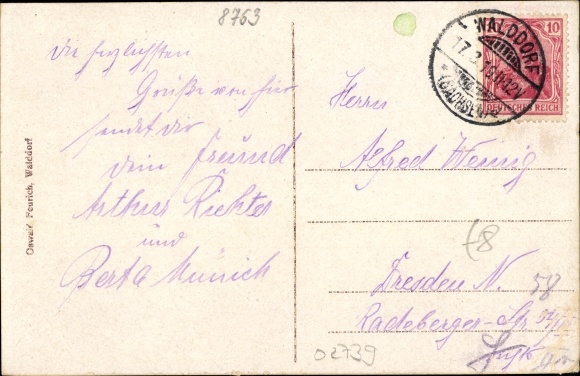 8763
Die herzlichsten
Grüße von hier
sendet dir
dein Freund
Arthur Richter
und
Berta Münich
Oswald Feurich, Walddorf
WALDDORF
17.
(SACHSEN)
10
DEUTSCHES REICH
Herrn
Alfred Hennig
Dresden N.
58
Radeberger-Str.
02739